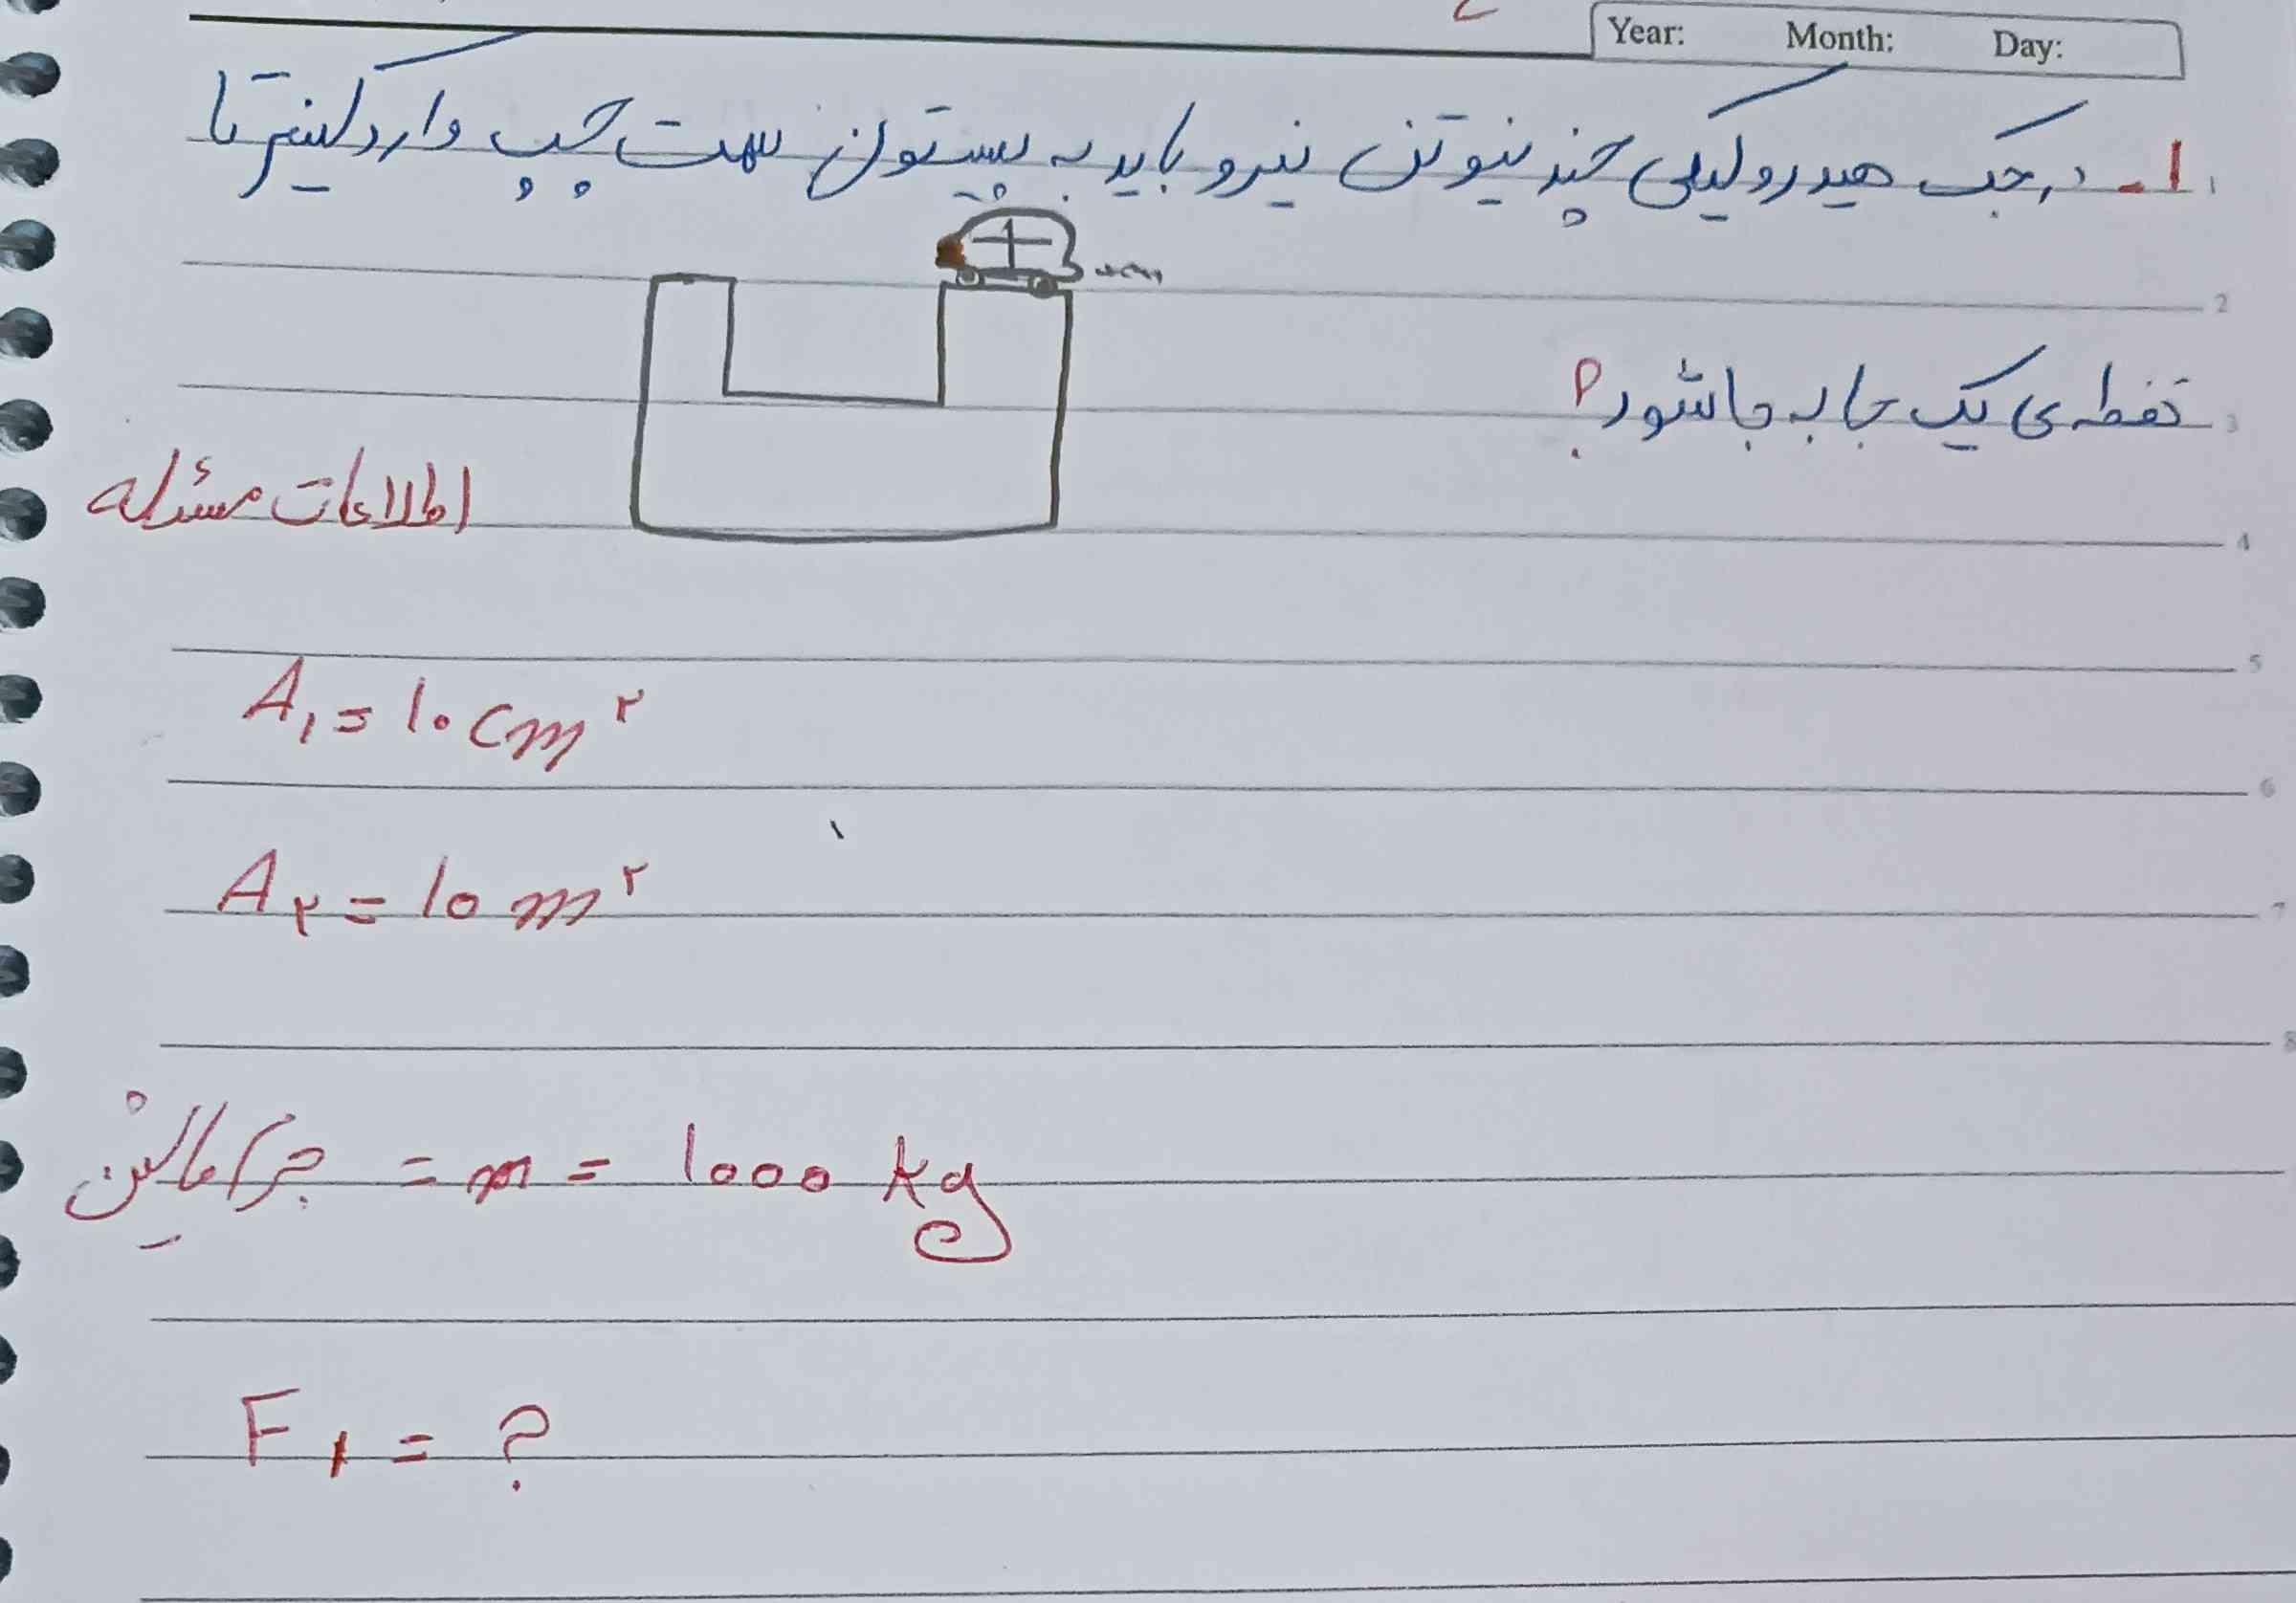 Year: Month: Day:
1 ۱- در جک هیدرولیکی چند نیوتن نیرو باید به پیستون سمت چپ وارد کنیم تا
2
3 نقطه ی یک جا به جا شود؟
4 اطلاعات مسئله
5
A₁ = ۱۰ cm²
6
A₂ = ۱۰ m²
7
8
جرم ماشین = m = ۱۰۰۰ kg
F₁ = ?